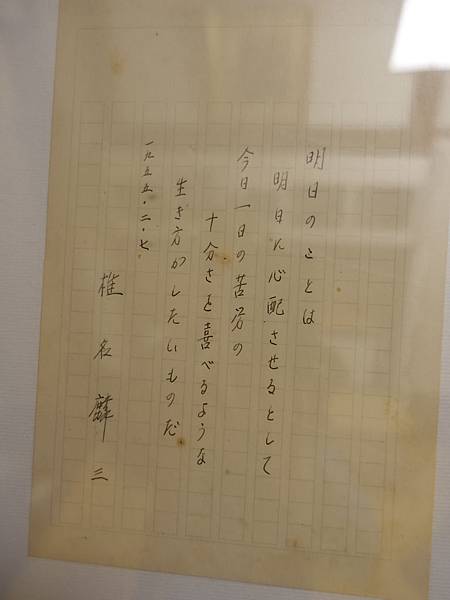 明日のことは
明日に心配させるとして
今日一日の苦労の
十分さを喜べるような
生き方がしたいものだ
一九五五・二・七
椎名麟三